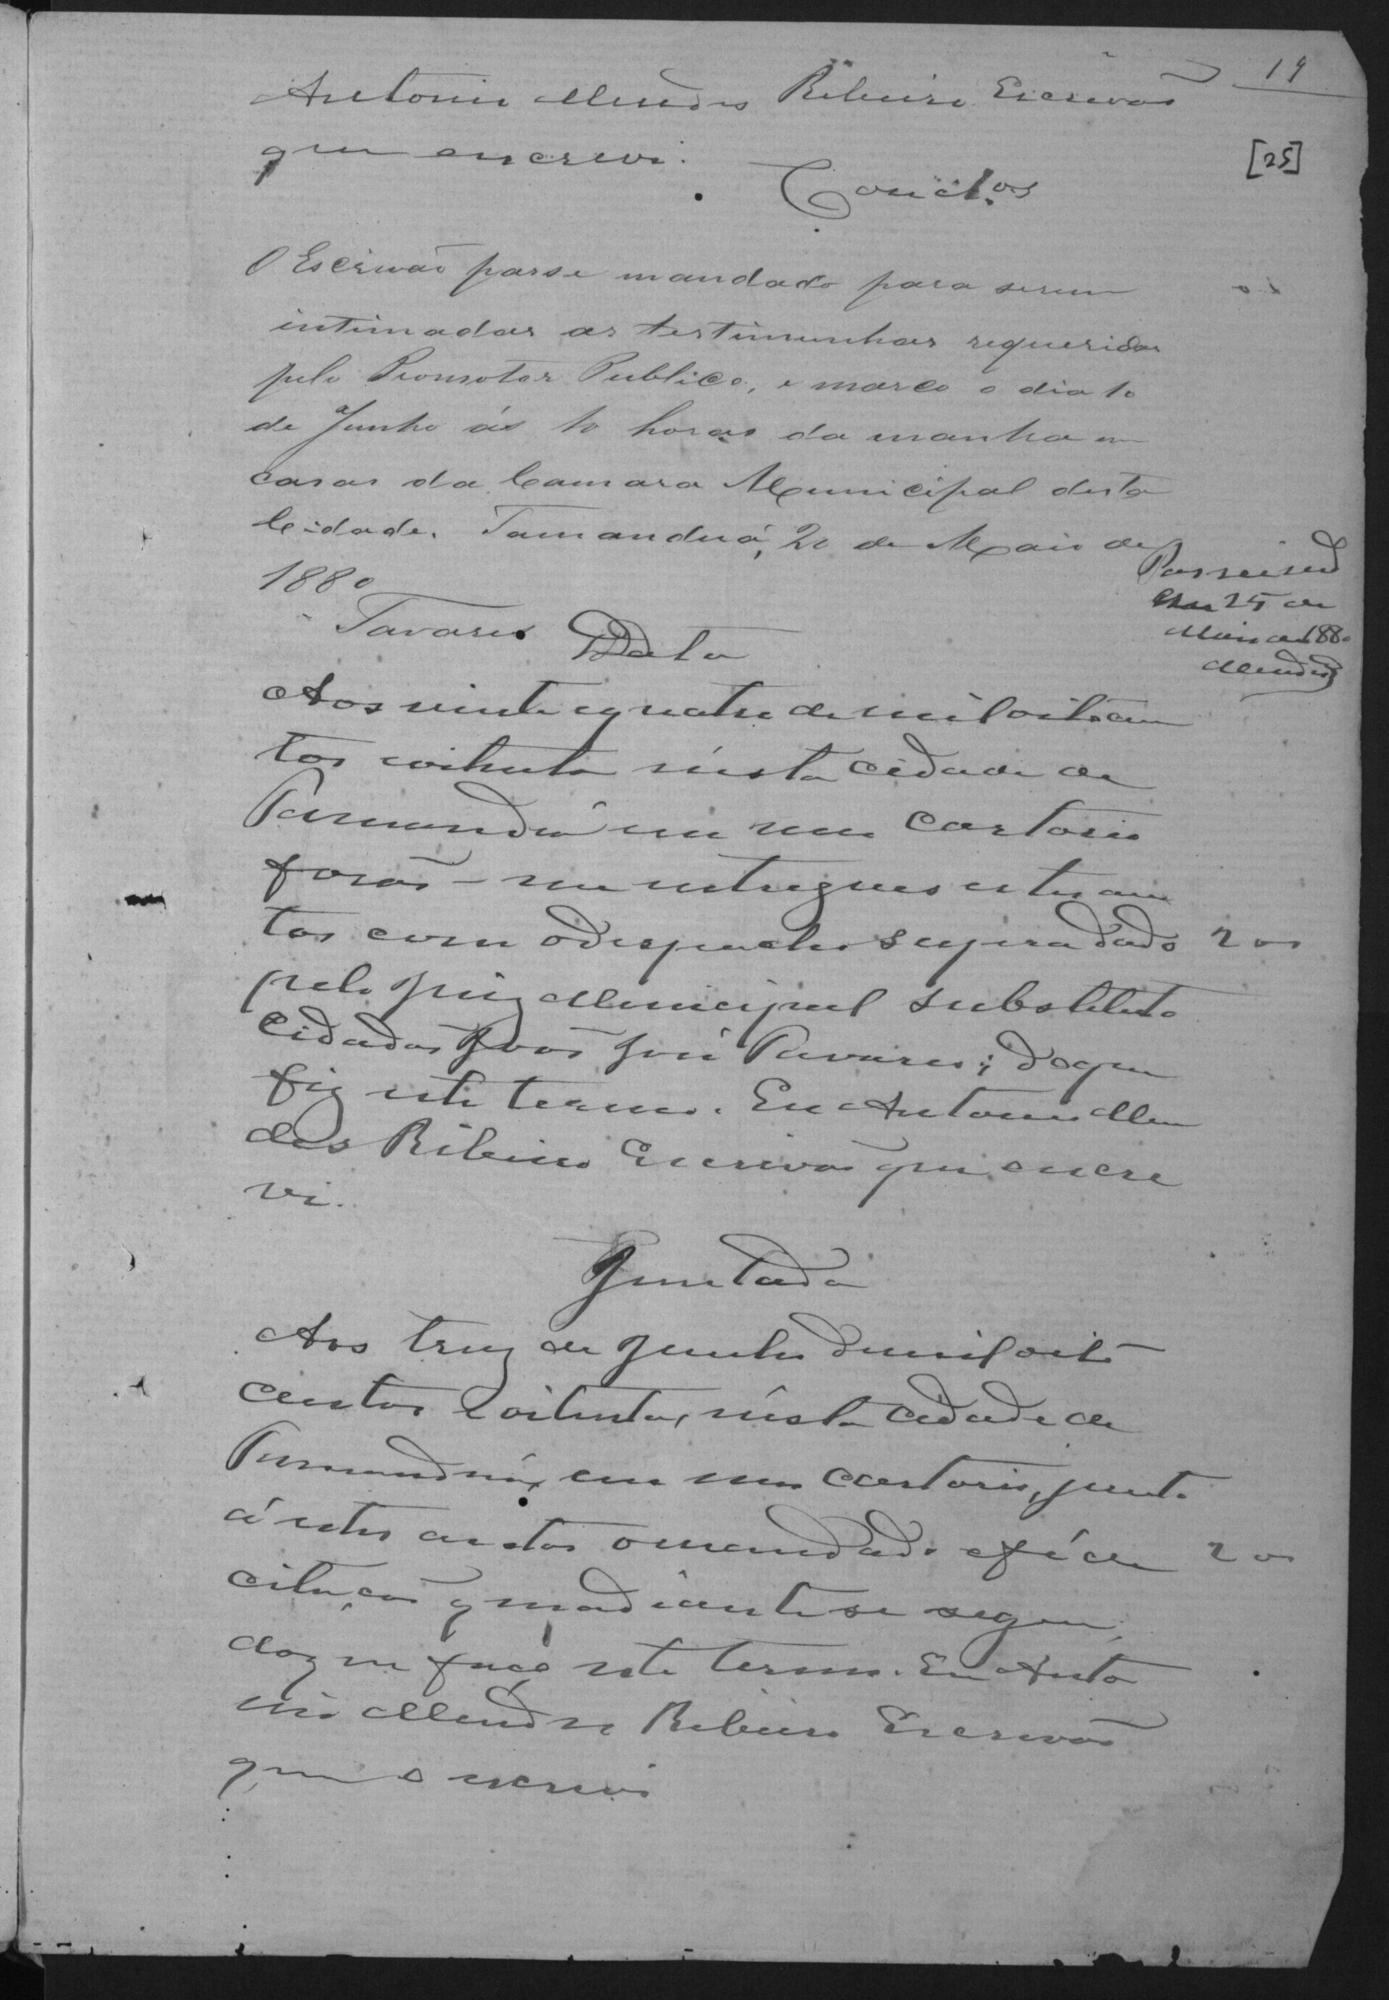 19
[25]
Antonio Mendes Ribeiro Escrivão
que escrevi.
Conclos
O Escrivão passe mandado para serem
intimadas as testimunhas requeridas
pelo Promotor Publico, e marco o dia 10
de Junho ás 10 horas da manha em
casas da Camara Municipal desta
Cidade. Tamanduá, 20 de Maio de
1880
Tavares
Passei
em 25 de
Maio de 1880
Mendes
Data
Aos vinte e quatro de mil oitocen
tos e oitenta nésta cidade de
Tamanduá em meu cartorio
forão-me entregues estes au
tos com o despacho supra dado
200
pelo Juiz Municipal substituto
Cidadão João José Tavares; do que
fiz este termo. Eu Antonio Men
des Ribeiro Escrivão que escre
vi.
Juntada
Aos trez de Junho de mil oito
centos e oitenta, nésta cidade de
Tamanduá, em meu cartorio, junto
á estes autos o mandado e fé de
200
citação que adiante se segue
do que faço este termo. Eu Anto
nio Mendes Ribeiro Escrivão
que o escrevi